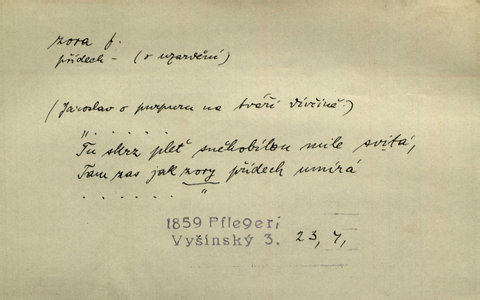 zora f.
přídech – (v uzardění)
(Jaroslav o purpuru na tváři dívčině:)
„ . . . . . .
Tu skrz pleť sněhobílou mile svítá,
Tam zas jak zory přídech umírá
. . . . . . "
1859 Pfleger,
Vyšínský 3. 23, 4,